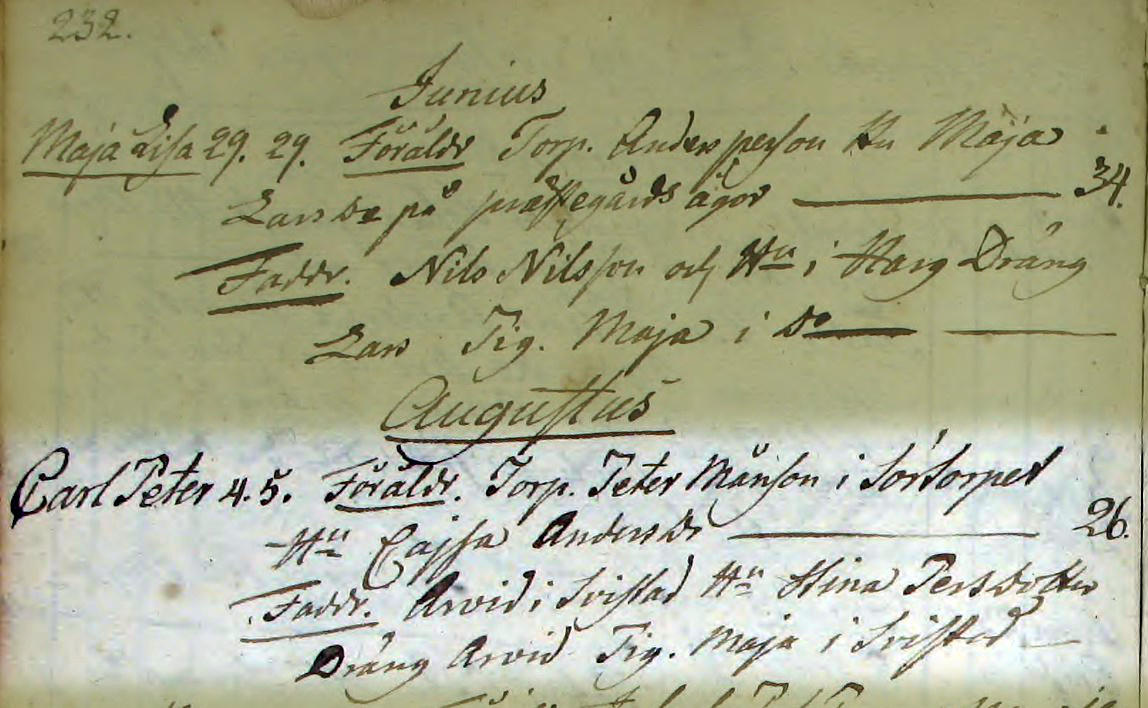 232.
Junius
Maja Lisa 29. 29. Föräldr Torp. Anders person Hu Maja
Lars Dr på prästegårds ägor 34.
Faddr. Nils Nilsson och Hu i Harg Dräng
Lars Pig. Maja i Do
Augustus
Carl Peter 4. 5. Föräldr. Torp. Peter Månson i Sörtorpet
Hu Cajsa Anders Dr 26.
Faddr. Arvid i Svistad Hu Stina Persdotter
Dräng Arvid Pig. Maja i Svistad